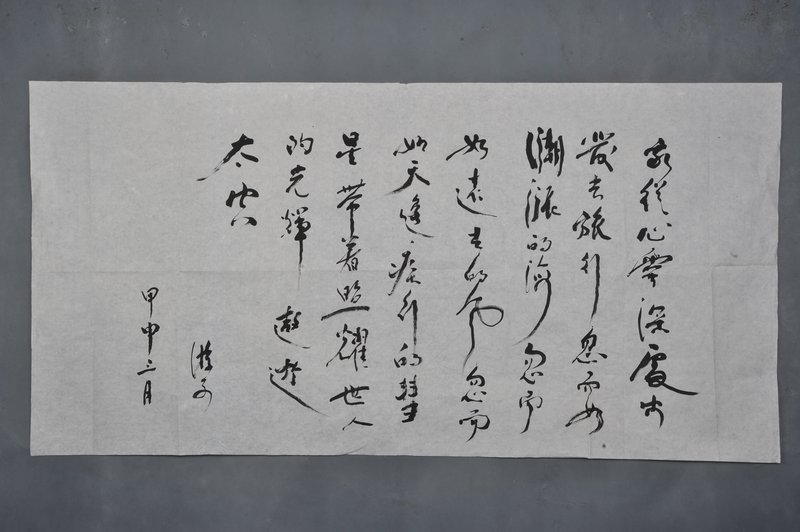 我從心靈深處出
發去旅行忽而如
潮漲的海忽而
如遠去的風忽而
如天邊疾行的彗
星帶着照耀世人
的光輝遨遊
太空
甲申三月